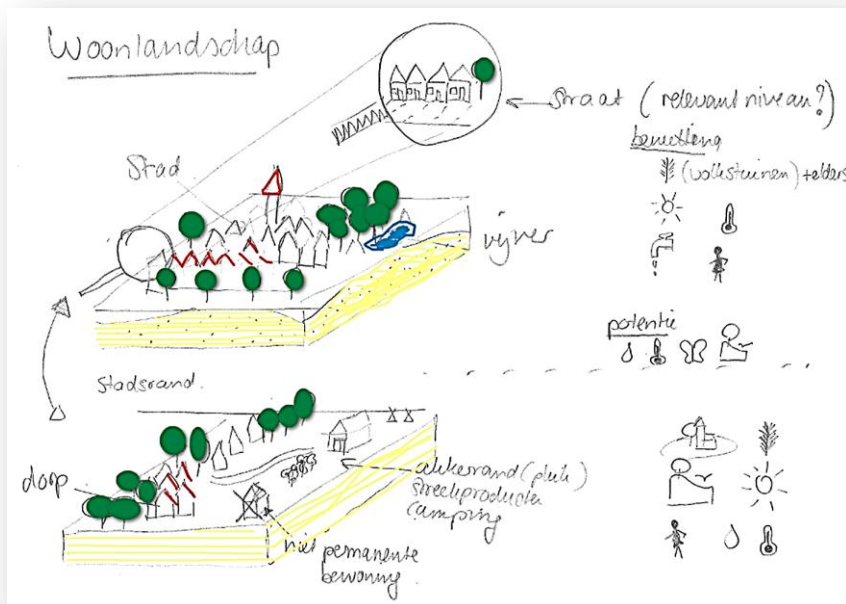 Woonlandschap
straat (relevant niveau?)
benutting
(volkstuinen) + elders
Stad
vijver
potentie
Stadsrand.
dorp
akkerrand (pluk)
streekproducten
camping
niet permanente
bewoning